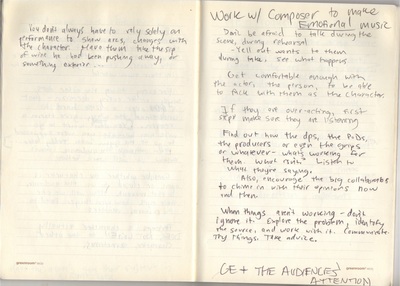 You don't always have to rely solely on
performance to show arcs, changes with
the character. Have them take the sip
of wine he had been pushing away, or
something exterior.
Work w/ Composer to make
Emotional music
Don't be afraid to talk during the
scene, during rehearsal
- Yell out wants to them
during take, see what happens
Get comfortable enough with
the actor, the person, to be able
to talk with them as the character.
If they are over-acting, first
step make sure they are listening
Find out how the dps, the PDs,
the producers or even the grips
or whatever - what's working for
them. What isn't. Listen to
what they're saying.
Also, encourage the big collaborators
to chime in with their opinions now
and then.
When things aren't working - don't
ignore it. Explore the problem, identify
the source, and work with it. Communicate.
Try things. Take advice.
GET THE AUDIENCES'
ATTENTION